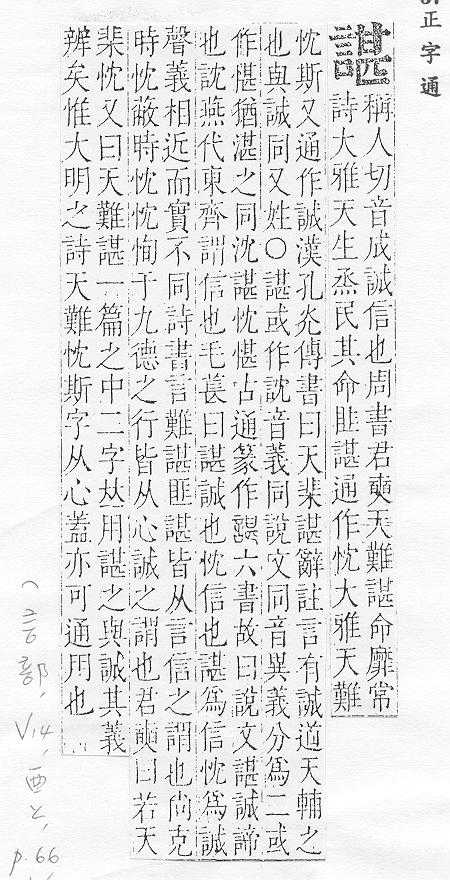 正字通
諶
稱人切音成誠信也周書君奭天難諶命靡常
詩大雅天生烝民其命匪諶通作忱大雅天難
忱斯又通作諴漢孔光傳書曰天棐諶辭註言有誠道天輔之
也與諴同又姓○諶或作訦音義同說文同音異義分爲二或
作愖猶湛之同沈諶忱愖古通篆作諶六書故曰說文諶誠諦
也訦燕代東齊謂信也毛萇曰諶誠也忱信也諶爲信忱爲誠
聲義相近而實不同詩書言難諶匪諶皆从言信之謂也尚克
時忱敝時忱忱恂于九德之行皆从心誠之謂也君奭曰若天
棐忱又曰天難諶一篇之中二字𠀤用諶之與諴其義
辨矣惟大明之詩天難忱斯字从心蓋亦可通用也
(言部,
V.14, 酉上,
p.66